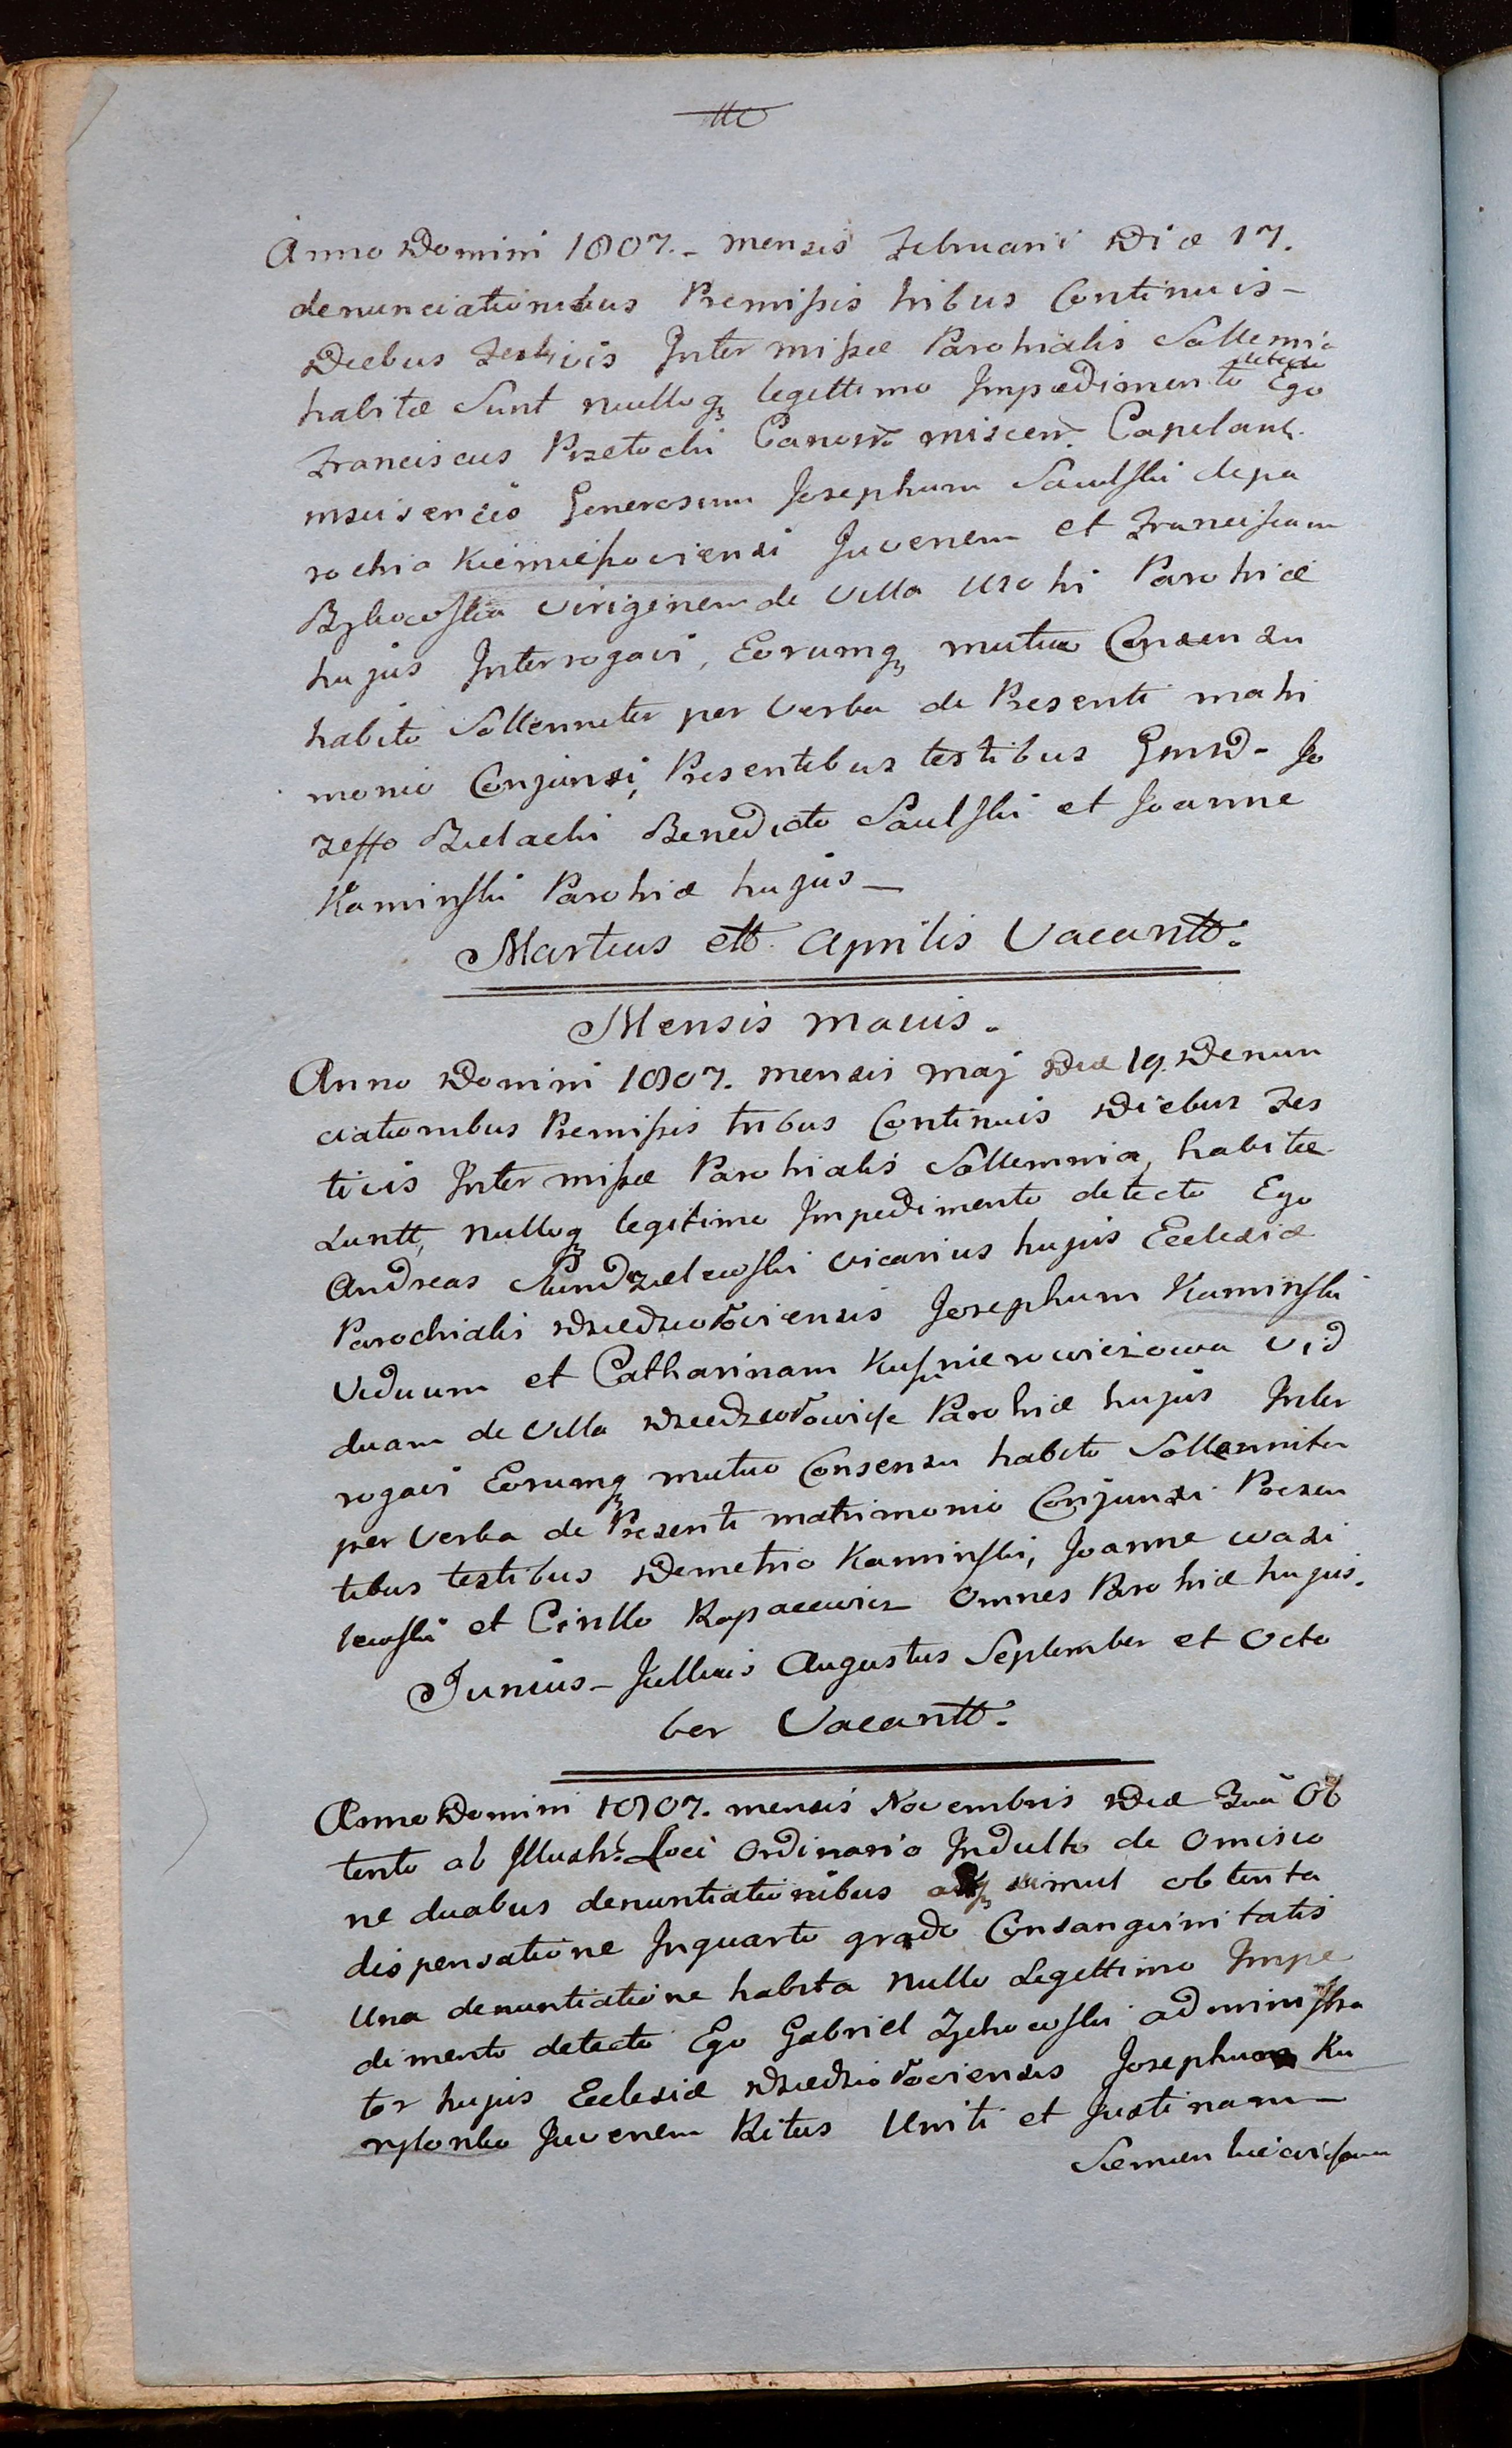 Anno Domini 1807. - mensis Februarii Die 17.
denunciationibus Premissis tribus Continuis -
Diebus Festivis Inter missæ Parohialis Sollemnia
habitæ Sunt nulloq legettimo Impædimento detecto Ego
Franciscus Capelani
Generosum Josephum Saulski depa
rochia Juvenem et Franciscam
virginem de Villa Parohiæ
hujus Interrogavi, Eorumq mutuo Consensu
habito Sollenniter per Verba de Presenti matri
monio Conjunxi, Presentibus testibus Gnrsd - Jo
zeffo Bielacki Benedicto Saulski et Joanne
Kaminski Parohiæ hujus —
Martius ett Aprilis Vacantt.
Mensis maius.
Anno Domini 1807. mensis maj Diæ 19. Denun
ciationibus Premissis tribus Continuis Diebus Fes
tivis Inter missæ Parohialis Sollemnia, habitæ
suntt, nulloq legitimo Impedimento detecto Ego
Andreas vicarius hujus Eclesiæ
Parochialis Josephum Kaminski
Viduum et Catharinam Vid
duam de Villa Parohiæ hujus Inter
rogavi Eorumq mutuo Consensu habito Sollenniter
per Verba de Presenti matrimonio Conjunxi Presen
tibus testibus Demetrio Kaminski, Joanne Wasi
lewski et Cirillo Rapacewicz Omnes Parohiæ hujus.
Junius - Jullius Augustus September et Octo
ber Vacantt.
Anno Domini 1807. mensis Novembris Diæ Ob
tento ab Illustr. Loci Ordinario Indulto de Omisio
ne duabus denuntiationibus simul obtenta
dispensatione Inquarto grado Consanguinitatis
Una denuntiatione habita Nullo Legettimo Impe
dimento detecto Ego Gabriel administra
tor hujus Eclesiæ Josephum Ku
Juvenem Ritus Uniti et Justinam —